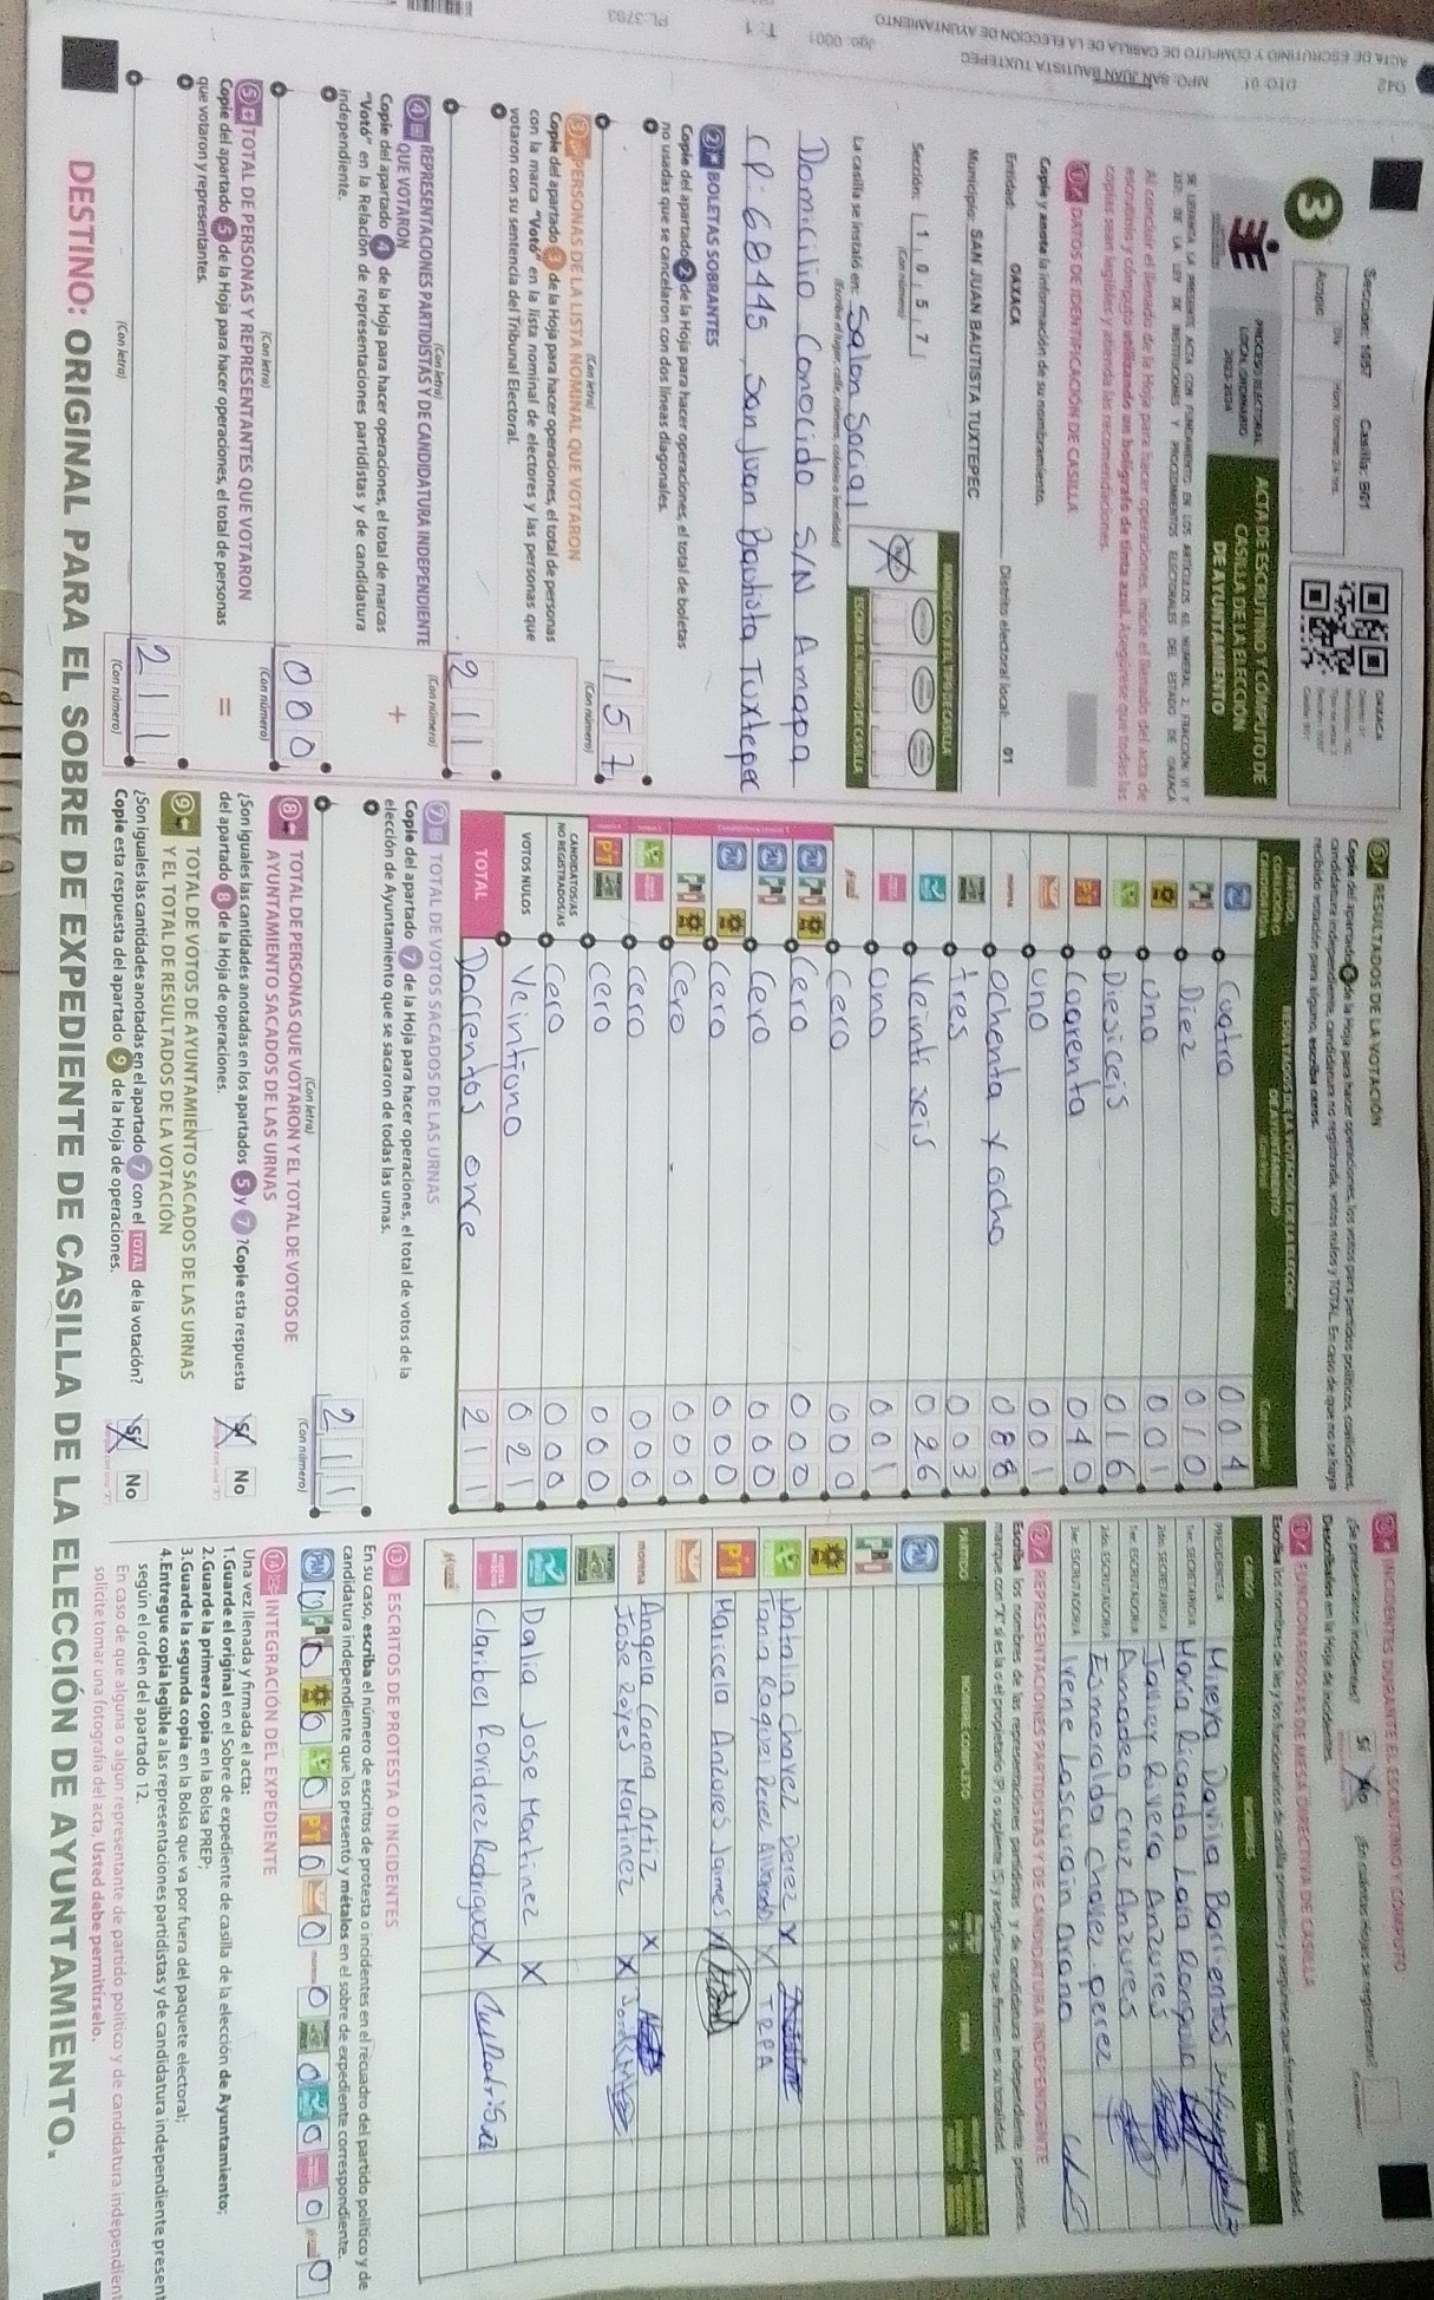 042 DTO: 01 MPO: SAN JUAN BAUTISTA TUXTEPEC
ACTA DE ESCRUTINIO Y CÓMPUTO DE CASILLA DE LA ELECCIÓN DE AYUNTAMIENTO Jgo: 0001 T: 1 PL:3793
3
Sección: 1057 Casilla: B01
Acopio
Día
OAXACA
PROCESO ELECTORAL
LOCAL ORDINARIO
2023-2024
ACTA DE ESCRUTINIO Y CÓMPUTO DE
CASILLA DE LA ELECCIÓN
DE AYUNTAMIENTO
Al concluir el llenado de la Hoja para hacer operaciones, inicie el llenado del acta de
escrutinio y cómputo utilizando un bolígrafo de tinta azul. Asegúrese que todas las
copias sean legibles y atienda las recomendaciones.
1 DATOS DE IDENTIFICACIÓN DE CASILLA
Copie y anote la información de su nombramiento.
Entidad: OAXACA Distrito electoral local: 01
Municipio: SAN JUAN BAUTISTA TUXTEPEC
Sección: 1 0 5 7
(Con número)
MARQUE CON X EL TIPO DE CASILLA
ESCRIBA EL NÚMERO DE CASILLA
La casilla se instaló en: Salon Social
(Escriba el lugar, calle, número, colonia o localidad)
Domicilio Conocido S/N Amapa
CP. 68445, San Juan Bautista Tuxtepec
2 BOLETAS SOBRANTES
Copie del apartado 2 de la Hoja para hacer operaciones, el total de boletas
no usadas que se cancelaron con dos líneas diagonales.
157
(Con letra) (Con número)
3 PERSONAS DE LA LISTA NOMINAL QUE VOTARON
Copie del apartado 3 de la Hoja para hacer operaciones, el total de personas
con la marca "Votó" en la lista nominal de electores y las personas que
votaron con su sentencia del Tribunal Electoral.
211
(Con letra) (Con número)
4 REPRESENTACIONES PARTIDISTAS Y DE CANDIDATURA INDEPENDIENTE
QUE VOTARON
+
Copie del apartado 4 de la Hoja para hacer operaciones, el total de marcas
"Votó" en la Relación de representaciones partidistas y de candidatura
independiente.
000
(Con letra) (Con número)
5 TOTAL DE PERSONAS Y REPRESENTANTES QUE VOTARON
Copie del apartado 5 de la Hoja para hacer operaciones, el total de personas
que votaron y representantes.
=
211
(Con letra) (Con número)
6 RESULTADOS DE LA VOTACIÓN
Copie del apartado 6 de la Hoja para hacer operaciones, los votos para partidos políticos, coaliciones,
candidatura independiente, candidatura no registrada, votos nulos y TOTAL. En caso de que no se haya
recibido votación para alguno, escriba ceros.
RESULTADOS DE LA VOTACIÓN DE LA ELECCIÓN
DE AYUNTAMIENTO
PAN Cuatro 004
PRI Diez 010
PRD Uno 001
Diesiceis 016
PT Coarenta 040
Uno 001
morena ochenta y ocho 088
tres 003
Veinti seis 026
uno 001
Cero 000
PAN PRI PRD Cero 000
PAN PRI Cero 000
PAN PRD Cero 000
PRI PRD Cero 000
Cero 000
PT Cero 000
CANDIDATOS/AS
NO REGISTRADOS/AS Cero 000
VOTOS NULOS Veintiuno 021
TOTAL Docientos once 211
7 TOTAL DE VOTOS SACADOS DE LAS URNAS
Copie del apartado 7 de la Hoja para hacer operaciones, el total de votos de la
elección de Ayuntamiento que se sacaron de todas las urnas.
211
(Con letra) (Con número)
8 TOTAL DE PERSONAS QUE VOTARON Y EL TOTAL DE VOTOS DE
AYUNTAMIENTO SACADOS DE LAS URNAS
¿Son iguales las cantidades anotadas en los apartados 5 y 7? Copie esta respuesta
del apartado 8 de la Hoja de operaciones.
Sí No
9 TOTAL DE VOTOS DE AYUNTAMIENTO SACADOS DE LAS URNAS
Y EL TOTAL DE RESULTADOS DE LA VOTACIÓN
¿Son iguales las cantidades anotadas en el apartado 7 con el TOTAL de la votación?
Copie esta respuesta del apartado 9 de la Hoja de operaciones.
Sí No
INCIDENTES DURANTE EL ESCRUTINIO Y CÓMPUTO
¿Se presentaron incidentes? Sí No
Descríbalos en la Hoja de incidentes.
FUNCIONARIOS/AS DE MESA DIRECTIVA DE CASILLA
Escriba los nombres de las y los funcionarios de casilla presentes y asegúrese que firmen en su totalidad.
CARGO NOMBRES FIRMAS
PRESIDENTE/A Mireya Davila Barrientos
1er. SECRETARIO/A María Ricarda Lara
2do. SECRETARIO/A Javier Rivera Anzures
1er. ESCRUTADOR/A Amadeo Cruz Anzures
2do. ESCRUTADOR/A Esmeralda Chavez perez
3er. ESCRUTADOR/A Irene Lascurain
REPRESENTACIONES PARTIDISTAS Y DE CANDIDATURA INDEPENDIENTE
Escriba los nombres de las representaciones partidistas y de candidatura independiente presentes,
marque con "X" si es la o el propietario (P) o suplente (S) y asegúrese que firmen en su totalidad.
PARTIDO NOMBRE COMPLETO P S FIRMA
PAN
PRI
PRD
Natalia Chavez Perez X
Tania Raquel Perez Alvarado X TRPA
PT Maricela Anzures Jaimes X
morena Angela Caona Ortiz X
Jose Reyes Martinez X
Dalia Jose Martinez X
Claribel Rodriguez X
13 ESCRITOS DE PROTESTA O INCIDENTES
En su caso, escriba el número de escritos de protesta o incidentes en el recuadro del partido político y de
candidatura independiente que los presentó y métalos en el sobre de expediente correspondiente.
PAN 0 PRI 0 PRD 0 0 PT 0 0 morena 0 0 0 0 0
14 INTEGRACIÓN DEL EXPEDIENTE
Una vez llenada y firmada el acta:
1.Guarde el original en el Sobre de expediente de casilla de la elección de Ayuntamiento;
2.Guarde la primera copia en la Bolsa PREP;
3.Guarde la segunda copia en la Bolsa que va por fuera del paquete electoral;
4.Entregue copia legible a las representaciones partidistas y de candidatura independiente present
según el orden del apartado 12.
En caso de que alguna o algún representante de partido político y de candidatura independient
solicite tomar una fotografía del acta, Usted debe permitírselo.
DESTINO: ORIGINAL PARA EL SOBRE DE EXPEDIENTE DE CASILLA DE LA ELECCIÓN DE AYUNTAMIENTO.